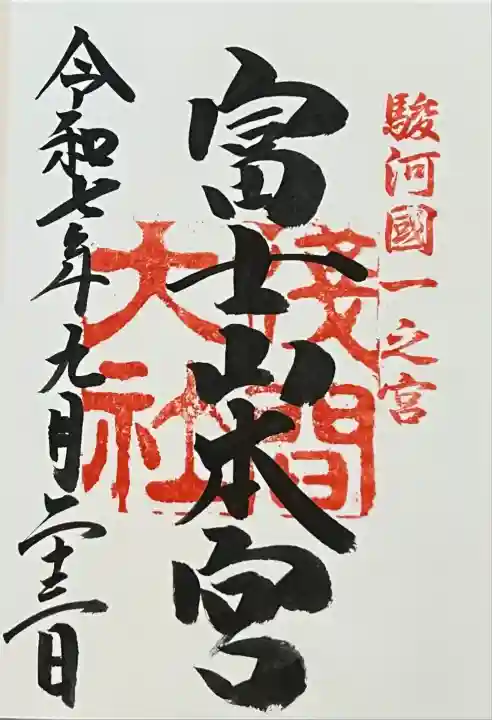 駿河國一之宮
富士山本宮
淺間
大社
令和七年九月二十三日